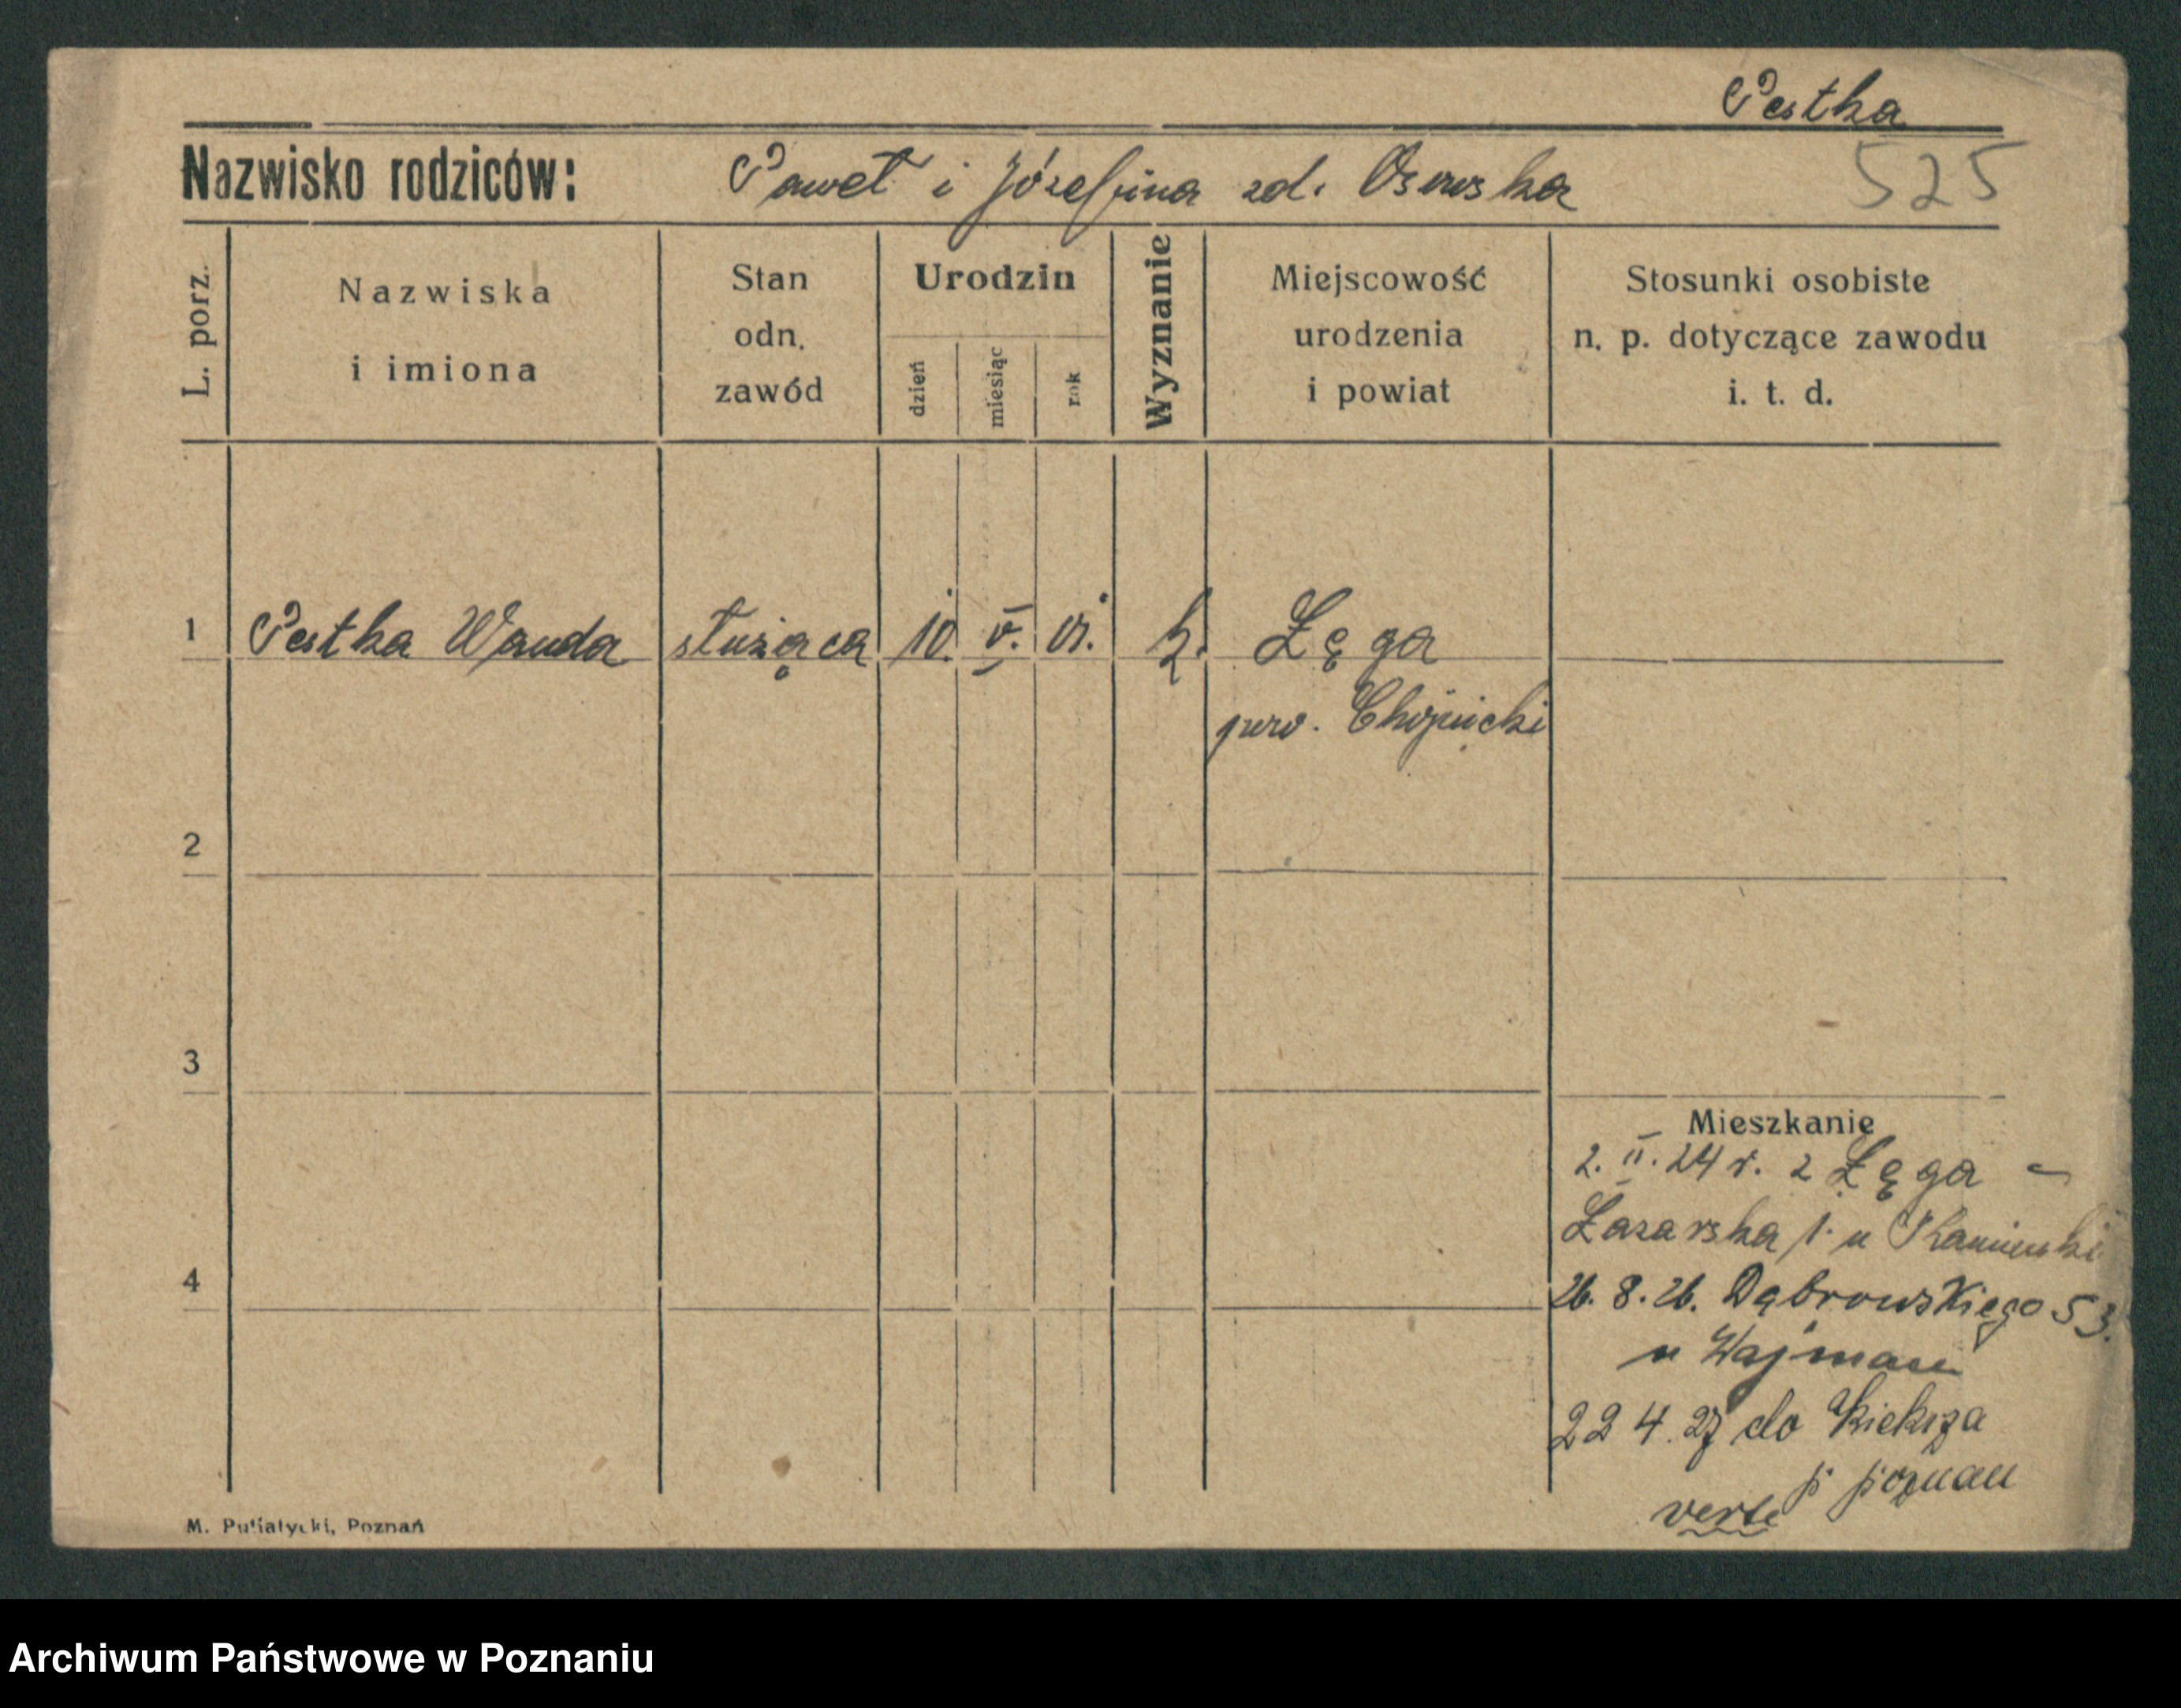 Pestka
Nazwisko rodziców: Paweł i Józefina zd. Osowska 525
L. porz.
Nazwiska
i imiona
Stan
odn.
zawód
Urodzin
dzień
miesiąc
rok
Wyznanie
Miejscowość
urodzenia
i powiat
Stosunki osobiste
n. p. dotyczące zawodu
i. t. d.
1 Pestka Wanda służąca 10. V. 01. k. Łęga
pow. Chojnicki
2
3
4
Mieszkanie
2. II. 24 r. z Łęga -
Łazarska 1. u Kamiński
26. 8. 26. Dąbrowskiego 53.
u Wajman
22 4. 27 do Kiekrza
p poznań
verte
M. Putiatycki, Poznań
Archiwum Państwowe w Poznaniu